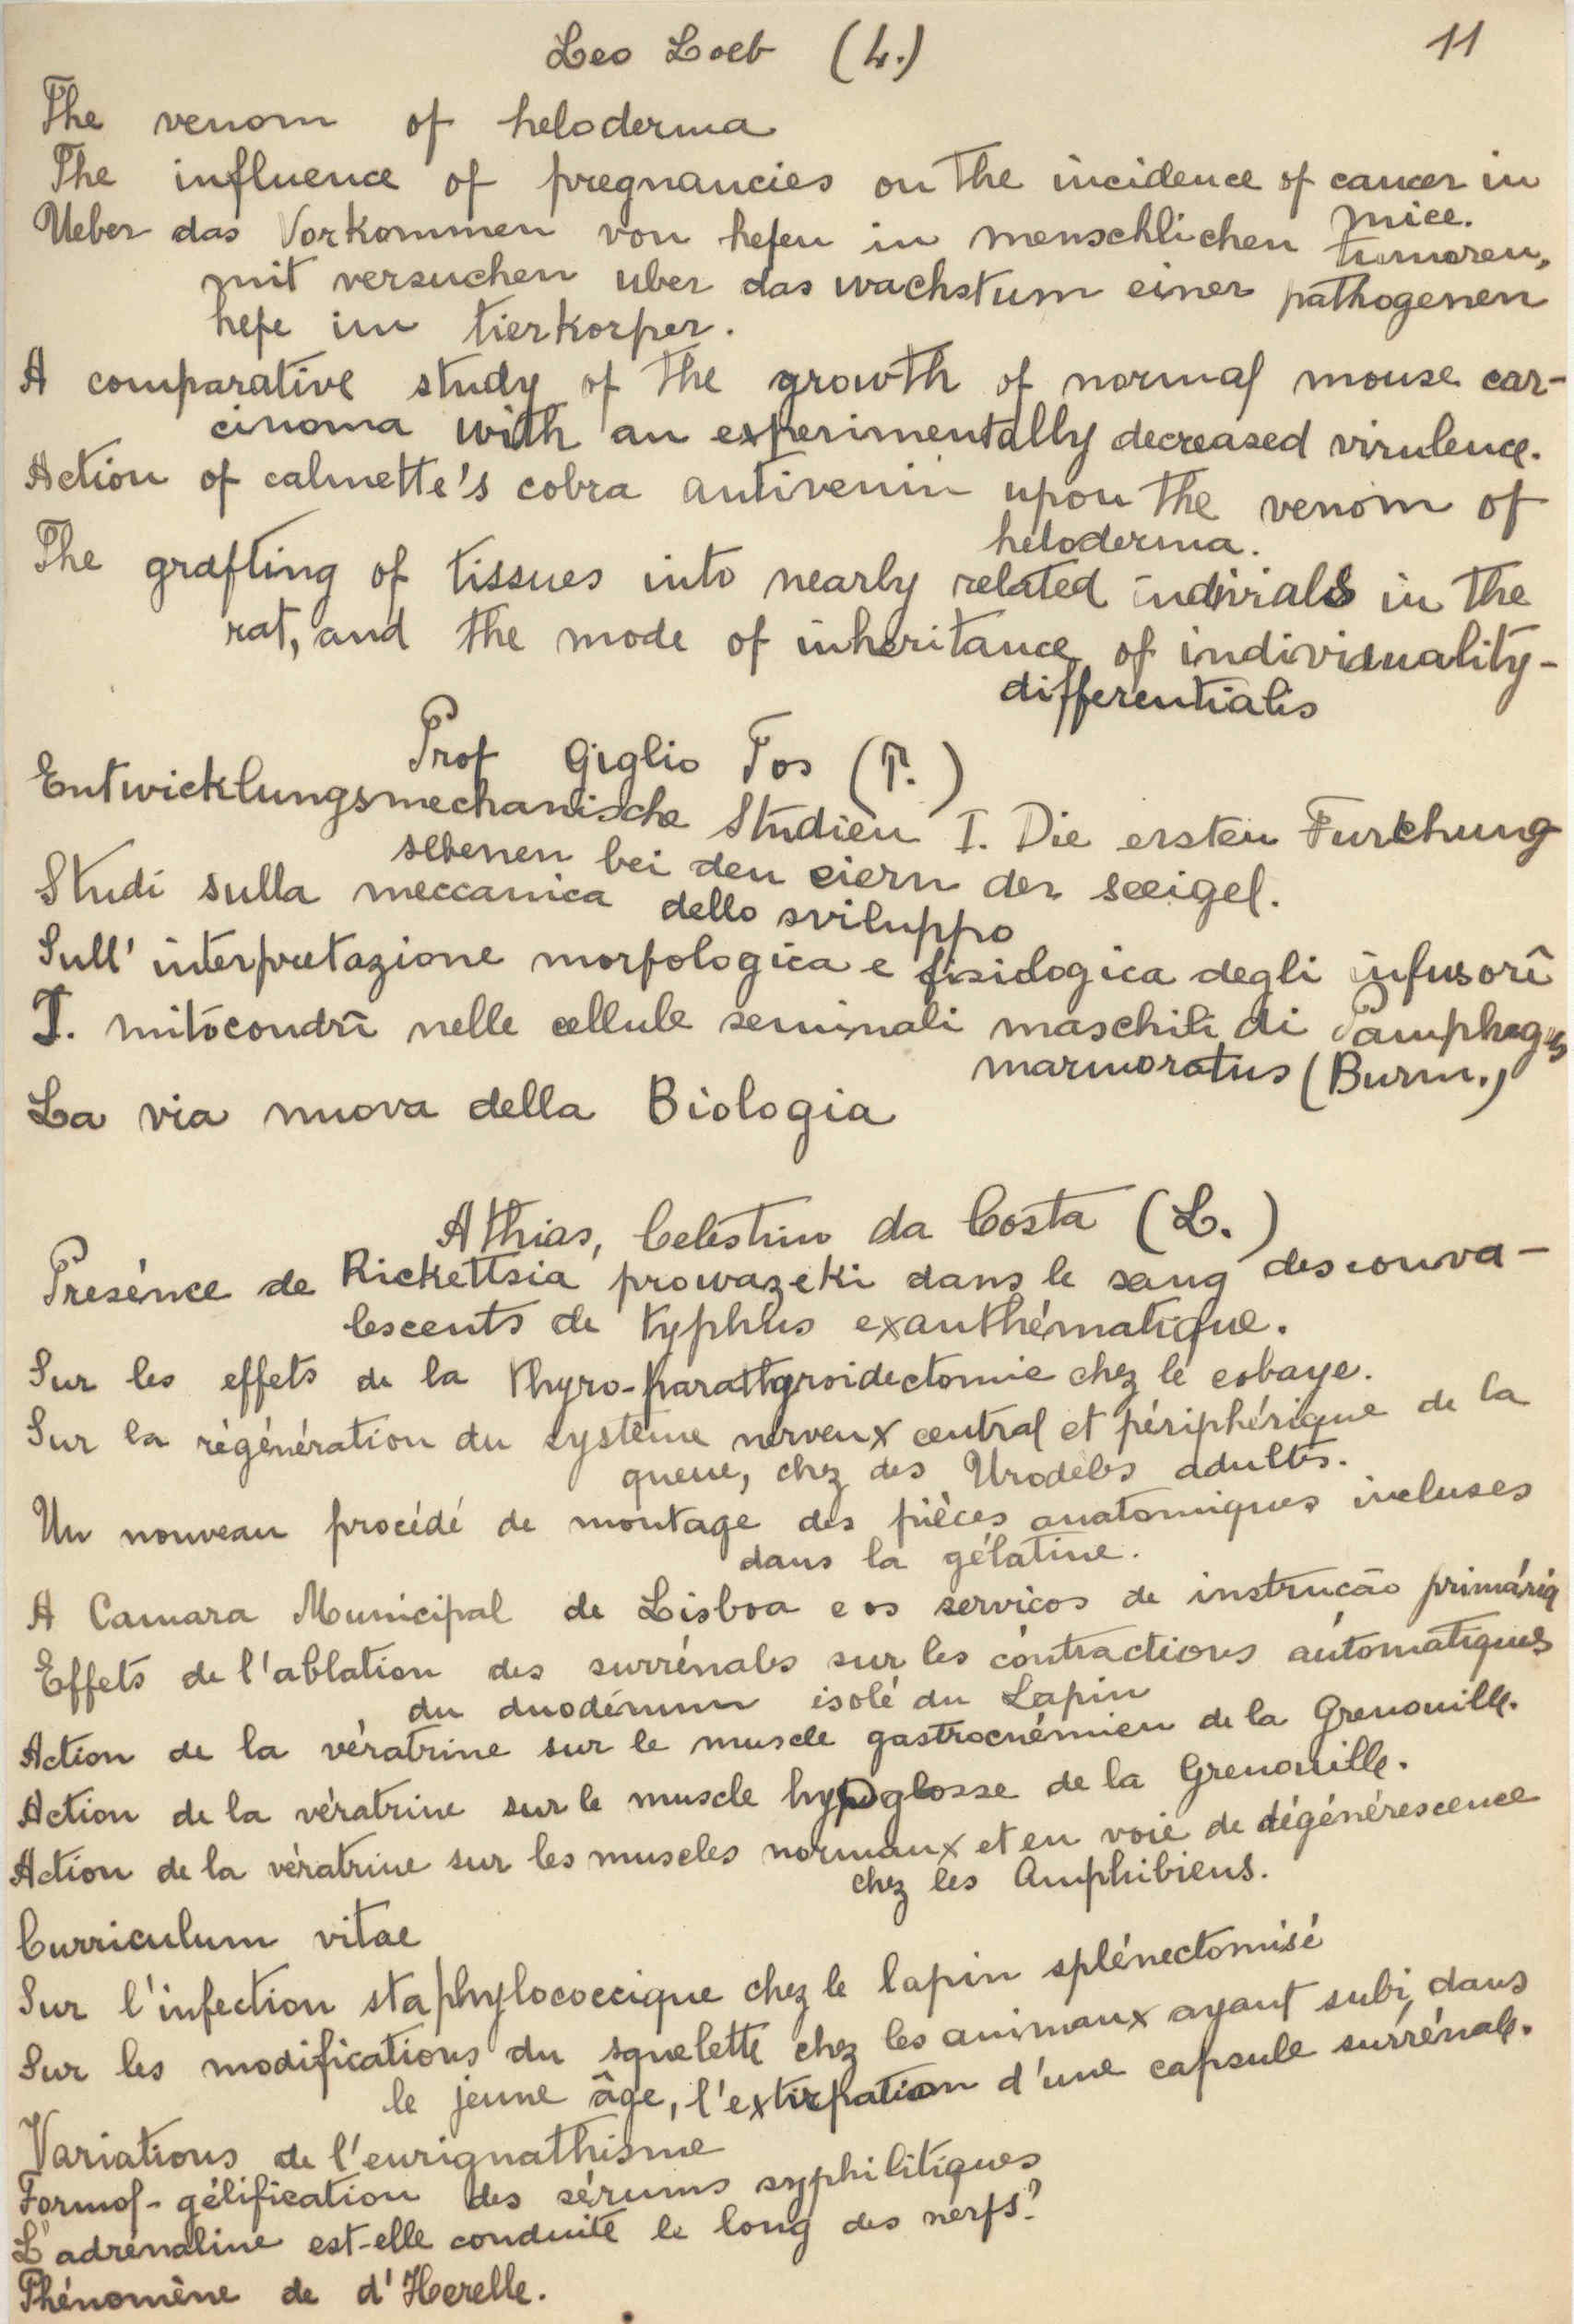 Leo Loeb (L.) 11
The venom of heloderma
The influence of pregnancies on the incidence of cancer in
mice.
Ueber das Vorkommen von hefen in menschlichen tumoren,
mit versuchen uber das wachstum einer pathogenen
hefe im tierkorper.
A comparative study of the growth of normal mouse car-
cinoma with an experimentally decreased virulence.
Action of calmette's cobra antivenin upon the venom of
heloderma.
The grafting of tissues into nearly related indivials in the
rat, and the mode of inheritance of individuality-
differentialis
Prof Giglio Tos (T.)
Entwicklungsmechanische Studien I. Die ersten Furchung
sebenen bei den eiern der seeigel.
Studi sulla meccanica dello sviluppo
Sull' interpretazione morfologica e fisiologica degli infusorî
I. mitocondrî nelle cellule seminali maschili di Pamphagus
marmoratus (Burm.)
La via nuova della Biologia
Athias, Celestino da Costa (L.)
Presénce de Rickettsia prowazeki dans le sang des conva-
lescents de typhus exanthématique.
Sur les effets de la thyro-parathyroidectomie chez le cobaye.
Sur la régénération du système nerveux central et périphérique de la
queue, chez des Urodèles adultes.
Un nouveau procédé de montage des pièces anatomiques incluses
dans la gélatine.
A Camara Municipal de Lisboa e os servicos de instrucão primária
Effets de l'ablation des surrénales sur les contractions automatiques
du duodénum isolé du Lapin
Action de la vératrine sur le muscle gastrocnémien de la Grenouille.
Action de la vératrine sur le muscle hypoglosse de la Grenouille.
Action de la vératrine sur les muscles normaux et en voie de dégénérescence
chez les Amphibiens.
Curriculum vitae
Sur l'infection staphylococcique chez le lapin splénectomisé
Sur les modifications du squelette chez les animaux ayant subi, dans
le jeune âge, l'extirpation d'une capsule surrénale.
Variations de l'eurignathisme
Formol-gélification des sérums syphilitiques
L'adrénaline est-elle conduite le long des nerfs?
Phénomène de d'Herelle.